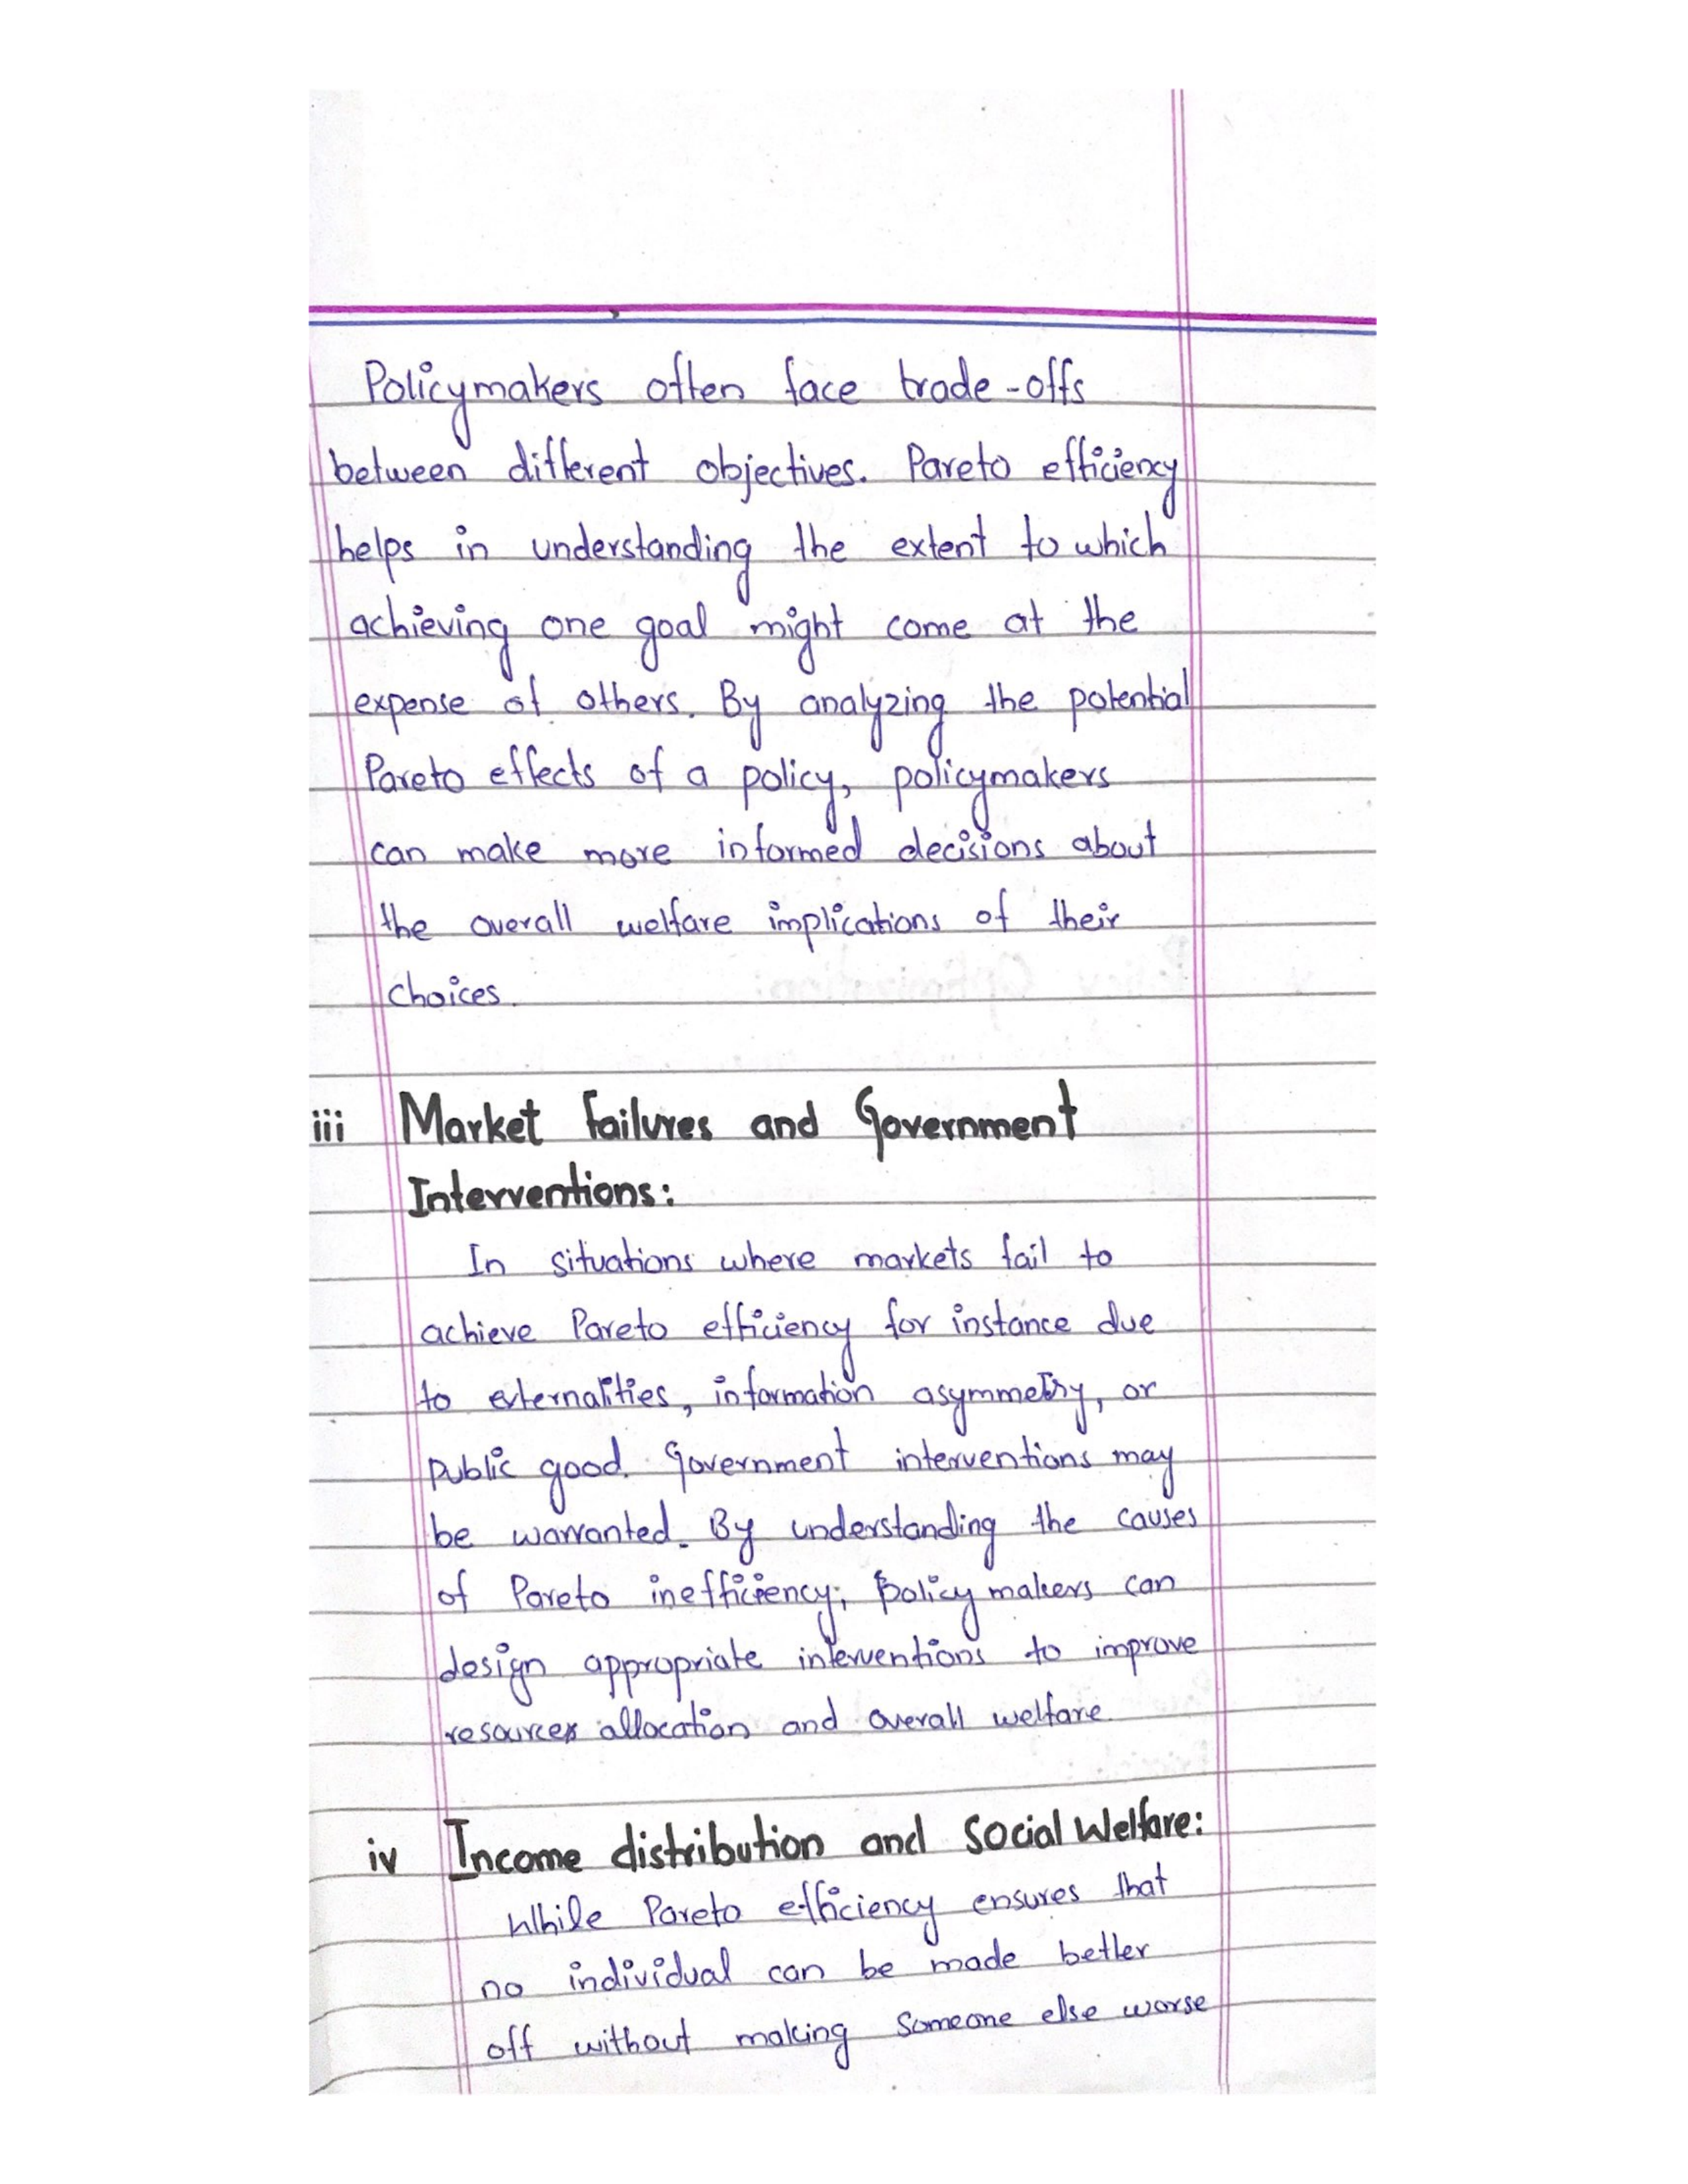 Policymakers often face trade-offs
between different objectives. Pareto efficiency
helps in understanding the extent to which
achieving one goal might come at the
expense of others. By analyzing the potential
Pareto effects of a policy, policymakers
can make more informed decisions about
the overall welfare implications of their
choices.
iii Market failures and Government
Interventions:
In situations where markets fail to
achieve Pareto efficiency for instance due
to externalities, information asymmetry, or
public good. Government interventions may
be warranted. By understanding the causes
of Pareto inefficiency, policy makers can
design appropriate interventions to improve
resources allocation and overall welfare.
iv Income distribution and Social Welfare:
While Pareto efficiency ensures that
no individual can be made better
off without making someone else worse